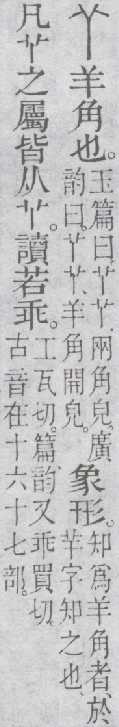 𦫳羊角也。玉篇曰。𦫳𦫳、兩角皃。廣韵曰。𦫳𦫳、羊角開皃。象形。知爲羊角者、於羋字知之也、
凡𦫳之屬皆从𦫳。讀若乖。工瓦切。篇、韵又乖買切。古音在十六十七部。